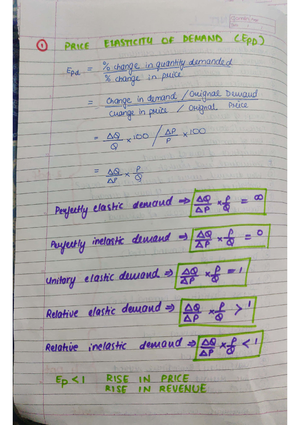 ① PRICE ELASTICITY OF DEMAND (EPD)
Epd = % change in quantity demanded / % change in price
= Change in demand / Original Demand
Change in price / Original Price
= ΔQ/Q × 100 / ΔP/P × 100
= ΔQ/ΔP × P/Q
Perfectly elastic demand ⇒ ΔQ/ΔP × P/Q = ∞
Perfectly inelastic demand ⇒ ΔQ/ΔP × P/Q = 0
Unitary elastic demand ⇒ ΔQ/ΔP × P/Q = 1
Relative elastic demand ⇒ ΔQ/ΔP × P/Q > 1
Relative inelastic demand ⇒ ΔQ/ΔP × P/Q < 1
Ep < 1 RISE IN PRICE
RISE IN REVENUE